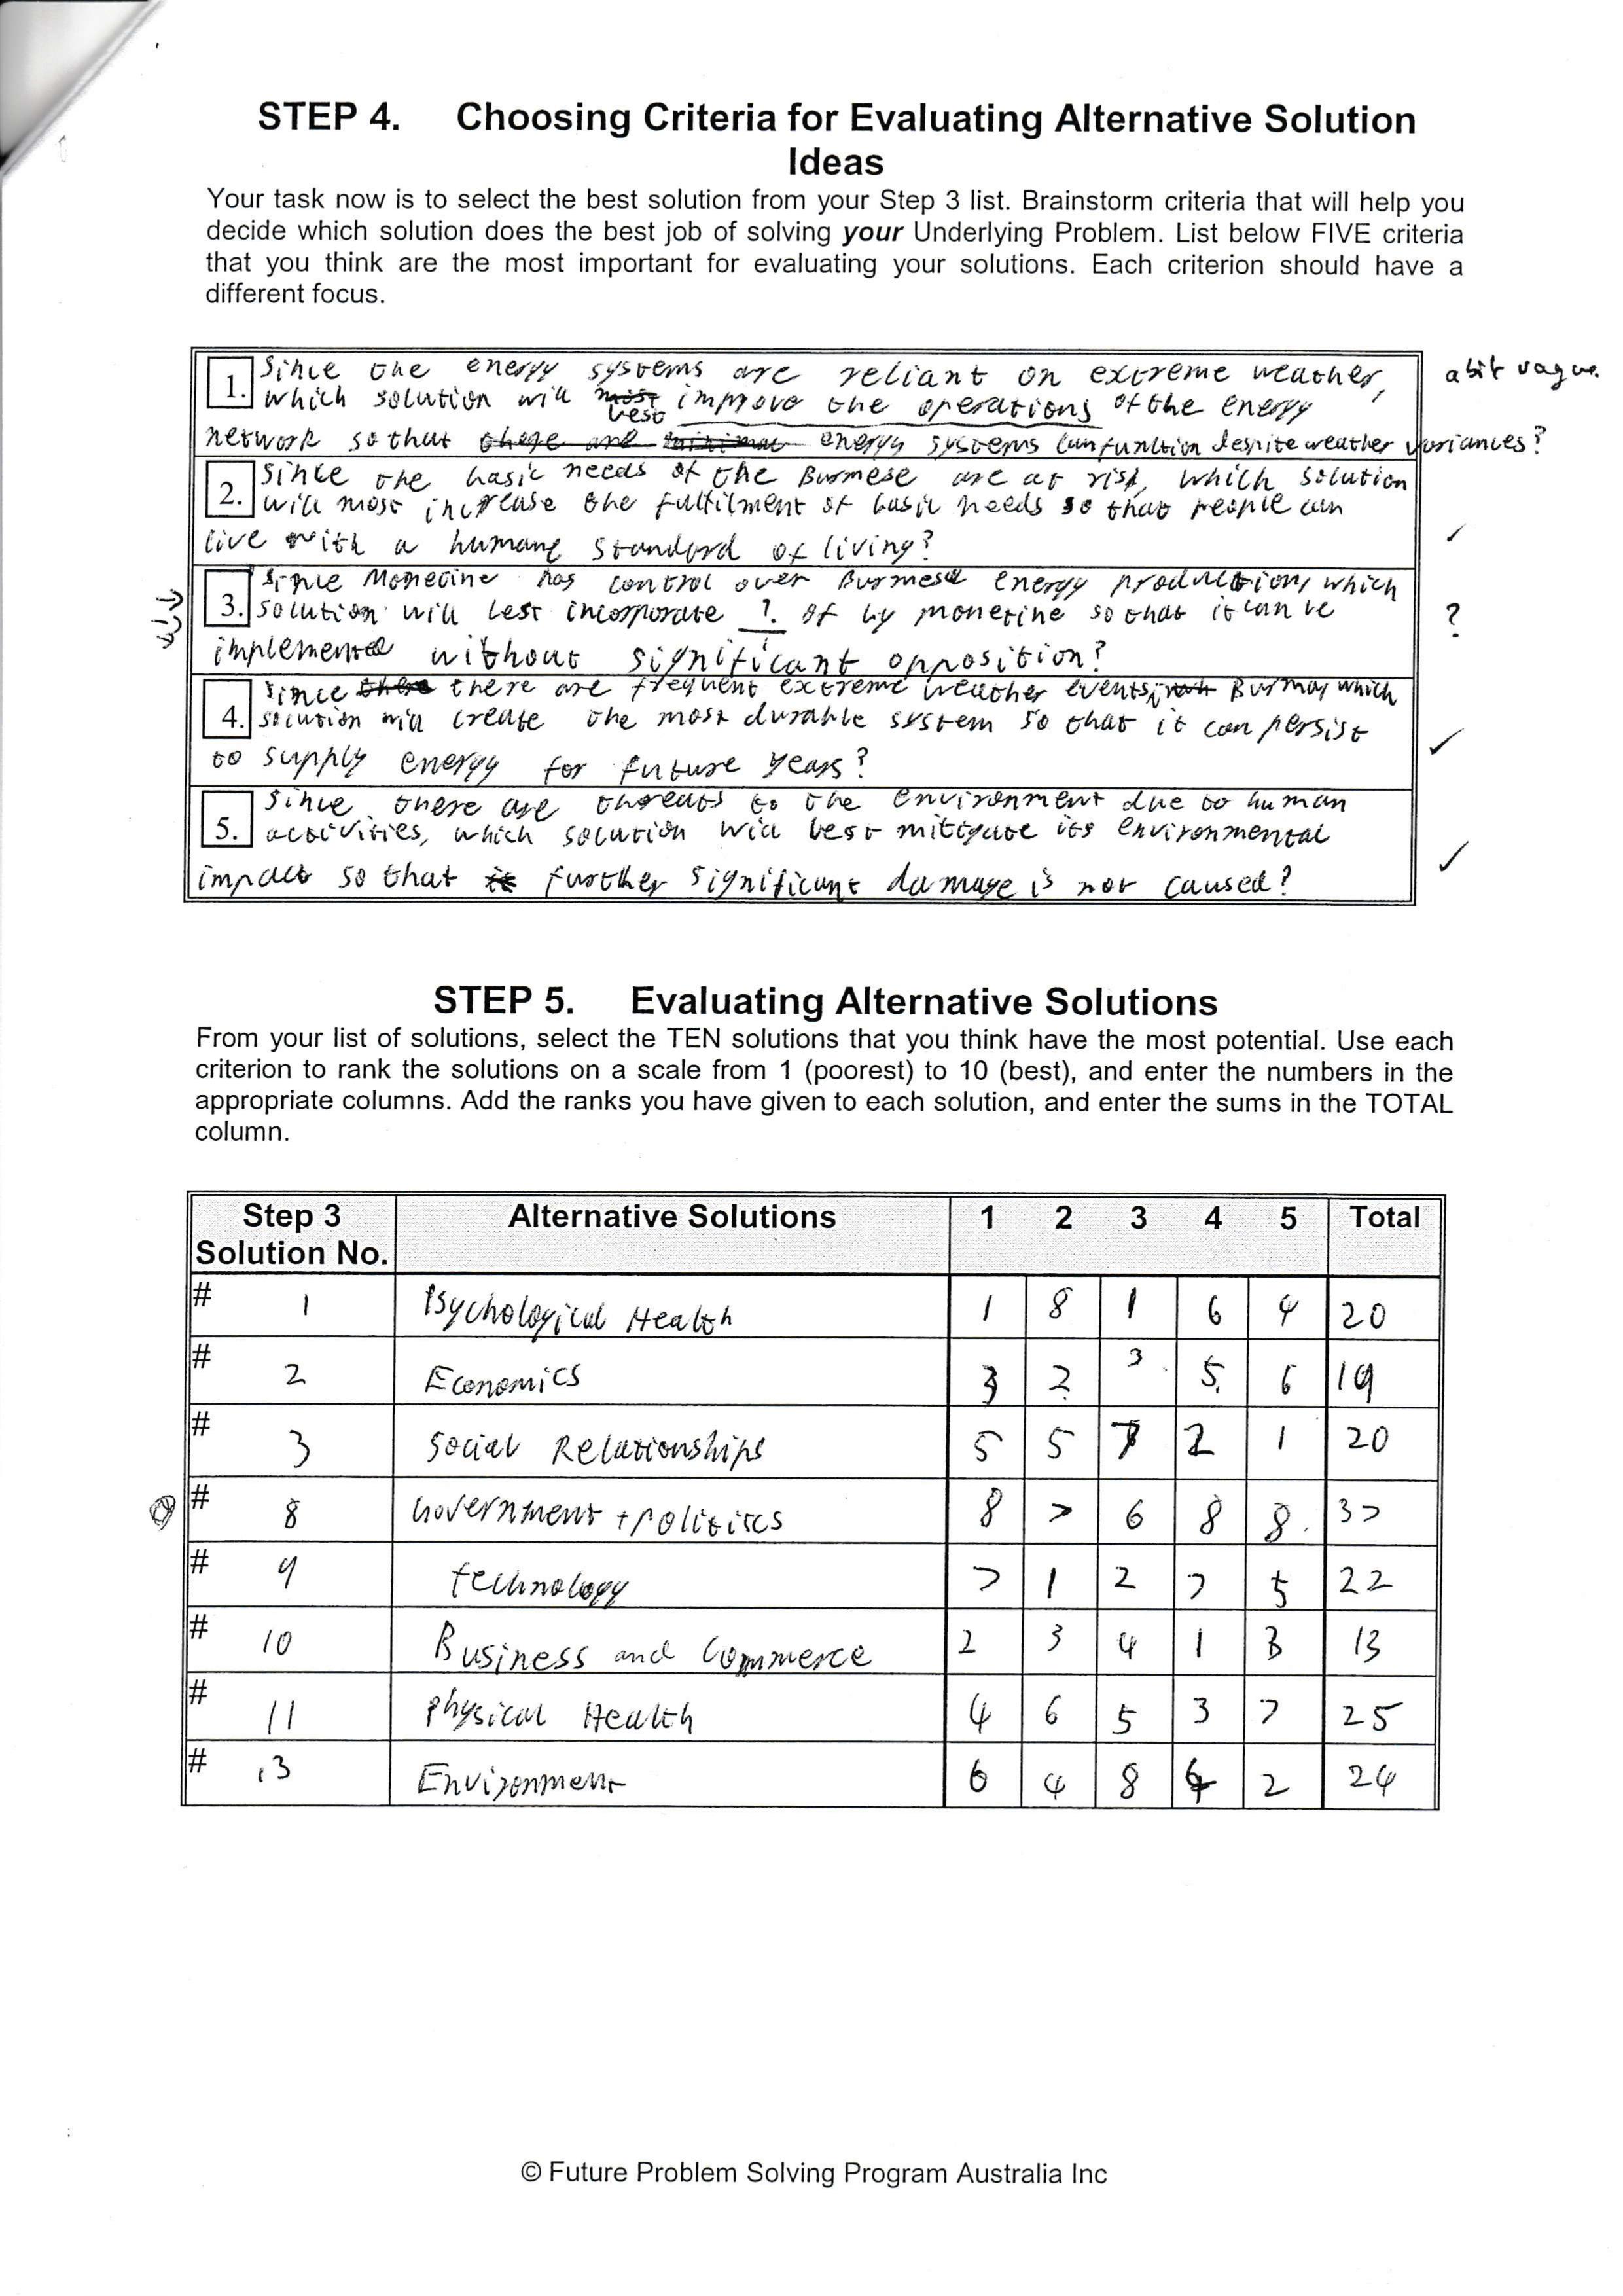 STEP 4. Choosing Criteria for Evaluating Alternative Solution
Ideas
Your task now is to select the best solution from your Step 3 list. Brainstorm criteria that will help you
decide which solution does the best job of solving your Underlying Problem. List below FIVE criteria
that you think are the most important for evaluating your solutions. Each criterion should have a
different focus.
1. Since the energy systems are reliant on extreme weather,
a bit vague.
which solution will most best improve the operations of the energy
network so that there are minimal energy systems can function despite weather variances?
2. Since the basic needs of the Burmese are at risk, which solution
will most increase the fulfilment of basic needs so that people can
live with a humane standard of living? ✓
3. Since Monetine has control over Burmese energy production, which
solution will best incorporate ? of by monetine so that it can be
?
implemented without significant opposition?
4. Since there there are frequent extreme weather events, in Burma, which
solution will create the most durable system so that it can persist
✓
to supply energy for future years?
5. Since there are threats to the environment due to human
activities, which solution will best mitigate its environmental
✓
impact so that it further significant damage is not caused?
STEP 5. Evaluating Alternative Solutions
From your list of solutions, select the TEN solutions that you think have the most potential. Use each
criterion to rank the solutions on a scale from 1 (poorest) to 10 (best), and enter the numbers in the
appropriate columns. Add the ranks you have given to each solution, and enter the sums in the TOTAL
column.
Step 3 Alternative Solutions 1 2 3 4 5 Total
Solution No.
# 1 Psychological Health 1 8 1 6 4 20
# 2 Economics 3 2 3 5 6 19
# 3 Social Relationships 5 5 7 2 1 20
# 8 Government + Politics 8 7 6 8 8 37
# 9 Technology 7 1 2 7 5 22
# 10 Business and Commerce 2 3 4 1 3 13
# 11 Physical Health 4 6 5 3 7 25
# 13 Environment 6 4 8 4 2 24
© Future Problem Solving Program Australia Inc